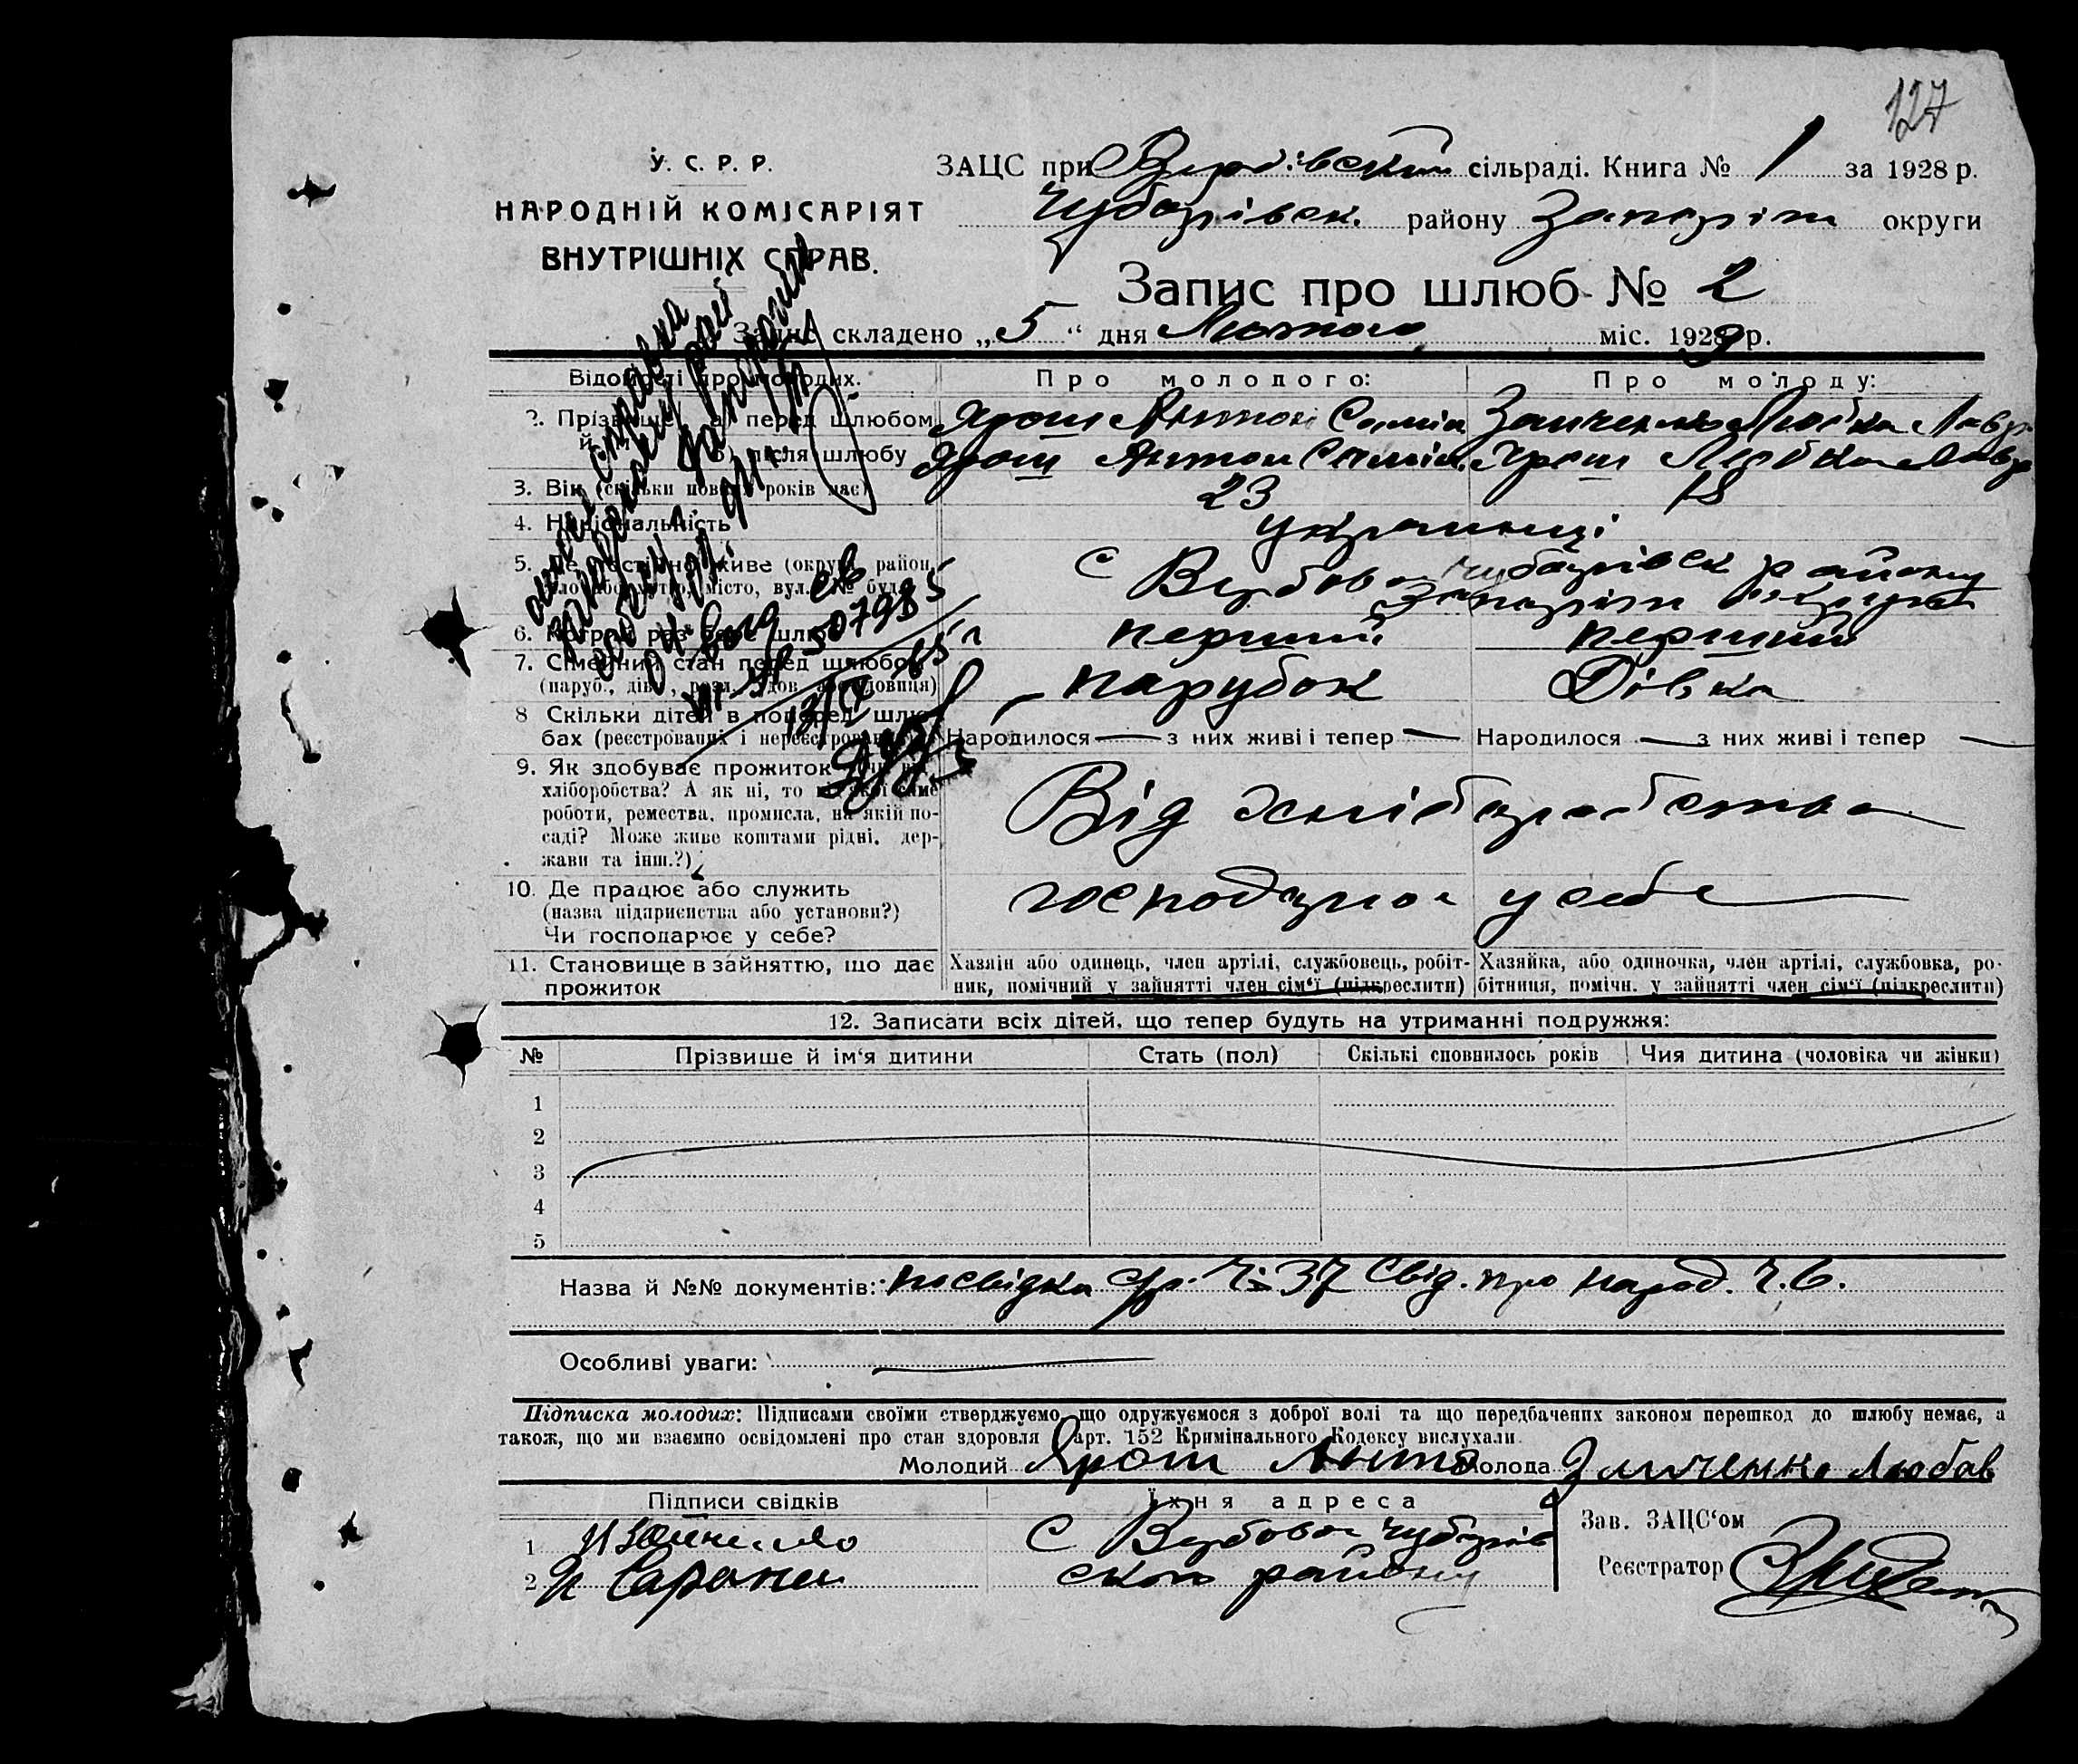 127
У. С. Р. Р.
НАРОДНІЙ КОМІСАРІЯТ
ВНУТРІШНІХ СПРАВ.
ЗАЦС при Вербівській сільраді. Книга № 1 за 1928 р.
Чубарівск. району Запоріж округи
Запис про шлюб № 2
Запис складено „5“ дня Лютого міс. 1929 р.
Відомості про молодих. Про молодого: Про молоду:
2. Прізвище а) перед шлюбом Ярош Антон
й б) після шлюбу Ярош Антон Ярош
3. Вік (скільки повних років має) 23 18
4. Національність українці
5. Де постійно живе (округа, район, с Вербова Чубарівск району
село або хутір, місто, вул. № буд. Запоріж округи
6. Котрий раз бере шлюб перший перший
7. Сімейний стан перед шлюбом парубок Дівка
(паруб., дівч., розл., вдов. або удовиця)
8 Скільки дітей в поперед. шлю-
бах (реєстрованих і нереєстрованих) Народилося — з них живі і тепер — Народилося — з них живі і тепер —
9. Як здобуває прожиток (чи від Від хліборобства
хліборобства? А як ні, то з якої саме
роботи, ремества, промисла, на якій по-
саді? Може живе коштами рідні, дер-
жави та інш.?)
10. Де працює або служить господарює у себе
(назва підприєнства або установи?)
Чи господарює у себе?
11. Становище в зайняттю, що дає Хазяїн або одинець, член артілі, службовець, робіт- Хазяйка, або одиночка, член артілі, службовка, ро-
прожиток ник, помічний у зайнятті член сім‘ї (підкреслити) бітниця, помічн. у зайнятті член сім‘ї (підкреслити)
12. Записати всіх дітей, що тепер будуть на утриманні подружжя:
№ Прізвише й ім‘я дитини Стать (пол) Скількі сповнилось років Чия дитина (чоловіка чи жінки)
1
2
3
4
5
Назва й №№ документів: посвідка Ч. 37 Свід. про народ. Ч. 6.
Особливі уваги: —
Підписка молодих: Підписами своїми стверджуємо, що одружуємося з доброї волі та що передбачених законом перешкод до шлюбу немає, а
також, що ми взаємно освідомлені про стан здоровля й арт. 152 Кримінального Кодексу вислухали.
Молодий Ярош Антон Молода Любов
Підписи свідків Їхня адреса
Зав. ЗАЦС‘ом
1 С Вербова Чубарів
2 ского району
Реєстратор
507985